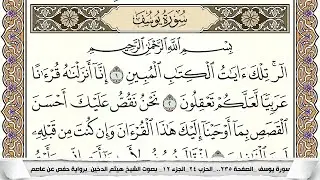 سُورَةُ يُوسُفَ
بِسْمِ اللَّهِ الرَّحْمَٰنِ الرَّحِيمِ
الٓرۚ تِلْكَ ءَايَٰتُ ٱلْكِتَٰبِ ٱلْمُبِينِ ١ إِنَّآ أَنزَلْنَٰهُ قُرْءَٰنًا
عَرَبِيًّا لَّعَلَّكُمْ تَعْقِلُونَ ٢ نَحْنُ نَقُصُّ عَلَيْكَ أَحْسَنَ
ٱلْقَصَصِ بِمَآ أَوْحَيْنَآ إِلَيْكَ هَٰذَا ٱلْقُرْءَانَ وَإِن كُنتَ مِن قَبْلِهِۦ
سورة يوسف .. الصفحة ٢٣٥ .. الحزب ٢٤ .. الجزء ١٢ .. بصوت الشيخ هيثم الدخين .. برواية حفص عن عاصم